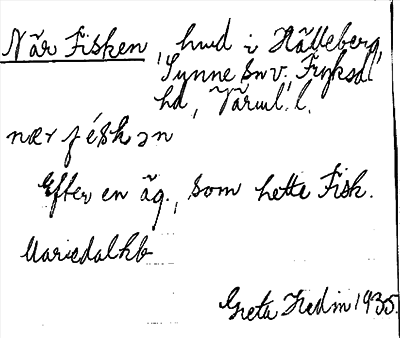 När Fisken, hmd i Hälleberg,
Lysne snv, Fryksd.
hd, Värml. l.
nær féskən
Efter en äg., som hette Fisk.
Mariedal kb
Greta Hedin 1935.